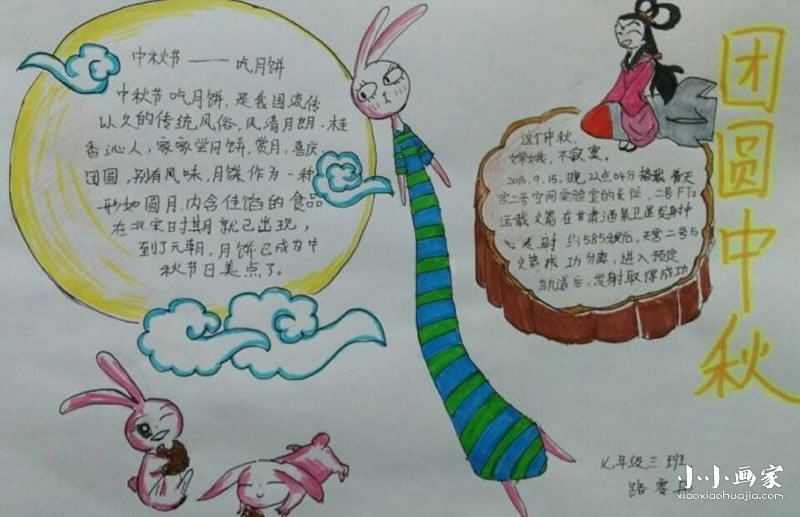 中秋节 —— 吃月饼
中秋节吃月饼,是我国流传
以久的传统风俗,风清月朗,桂
香沁人,家家尝月饼,赏月,喜庆
团圆,别有风味,月饼作为一种
形如圆月,内含佳馅的食品
在北宋时期就已出现,
到了元朝,月饼已成为中
秋节日美点了。
这个中秋,
嫦娥,不寂寞。
2016.9.15,晚22点04分搭载
宫二号空间实验室的长征二号FT2
运载火箭在甘肃酒泉卫星发射中
心发射 约585秒后,天宫二号与
火箭成功分离,进入预定
轨道后,发射取得成功
团圆中秋
七年级三班
路
小小画家
xiaoxiaohuajia.com